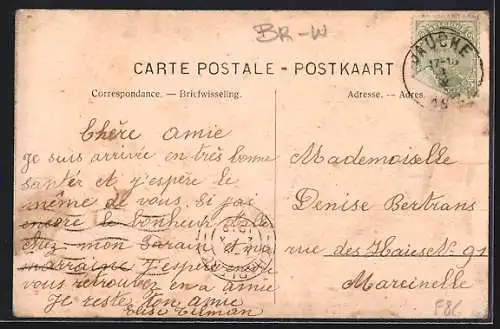 BR-W
JAUCHE
17-18
CARTE POSTALE - POSTKAART
Correspondance. — Briefwisseling.
Adresse. — Adres.
Chère amie
je suis arrivée en très bonne
santer et j'espère le
même de vous. Si j'ai
encore le bonheur
chez mon parain et ma
marraine j'espère
vous retrouvez en a amie
Je reste ton amie
Elise Tilman
Mademoiselle
Denise Bertrans
rue des Haies N. 91
Marcinelle